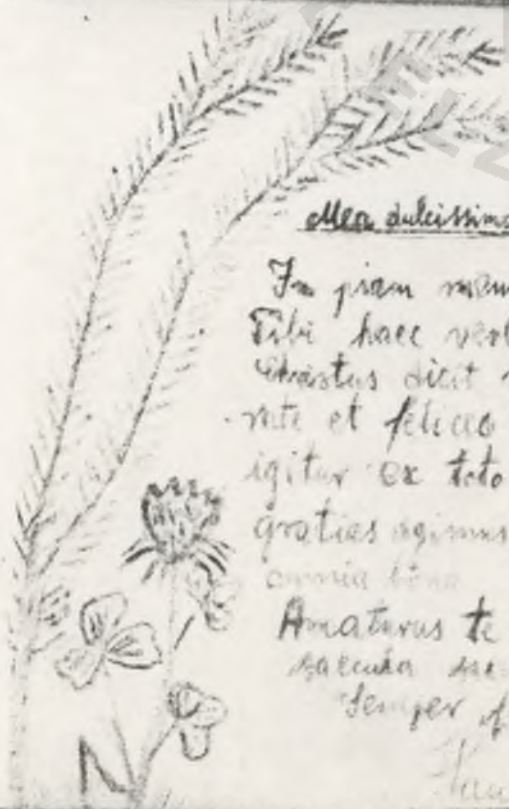 Mea dulcissima
In piam mem
Tibi haec verb
Christus dicit
et
igitur ex toto
gratias agimus
omnia bona
Amaturus te
saecula
Semper